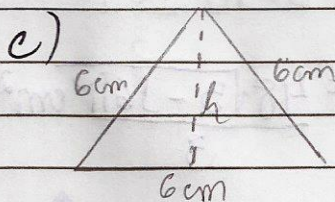 c)
6cm 6cm
h
6cm